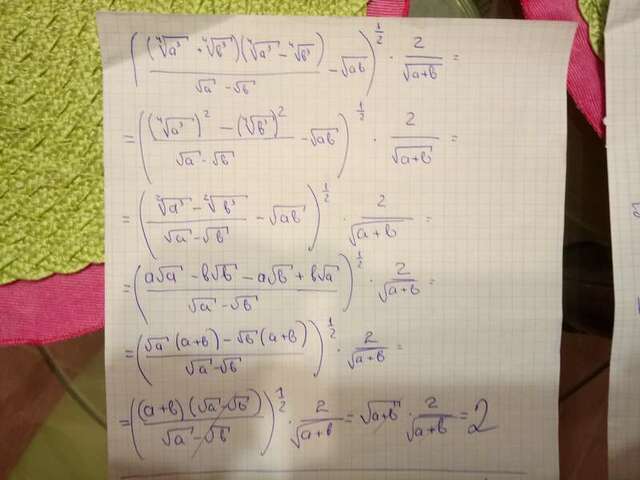 (((⁴√a³ + ⁴√b³)(⁴√a³ - ⁴√b³))/(√a - √b) - √ab)^(1/2) · 2/√(a+b) =
= (((⁴√a³)² - (⁴√b³)²)/(√a - √b) - √ab)^(1/2) · 2/√(a+b) =
= ((√a³ - √b³)/(√a - √b) - √ab)^(1/2) · 2/√(a+b) =
= ((a√a - b√b - a√b + b√a)/(√a - √b))^(1/2) · 2/√(a+b) =
= ((√a(a+b) - √b(a+b))/(√a - √b))^(1/2) · 2/√(a+b) =
= (((a+b)(√a - √b))/(√a - √b))^(1/2) · 2/√(a+b) = √(a+b) · 2/√(a+b) = 2